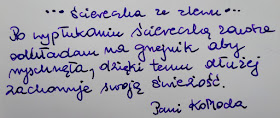 ... Ściereczka ze zlewu ...
Po wypłukaniu ściereczkę zawsze
odkładam na grzejnik aby
wyschnęła, dzięki temu dłużej
zachowuje swoją świeżość.
Pani Komoda